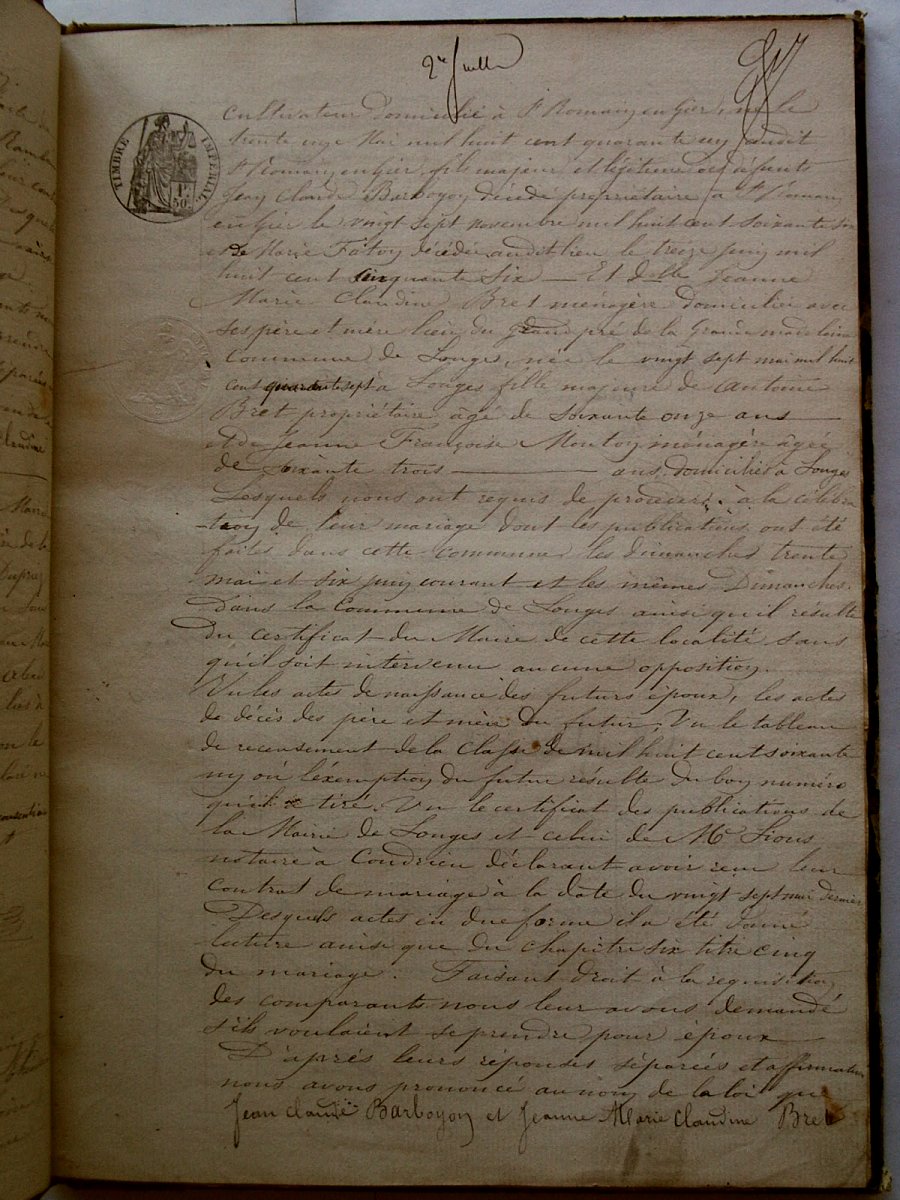 2me feuille
TIMBRE IMPÉRIAL
1F
50C
cultivateur domicilié à St Romain en Gier, né le
trente une Mai mil huit cent quarante un audit
St Romain en Gier, fils majeur et légitime des défunts
Jean Claude Barboyon décédé propriétaire à St Romain
en Gier le vingt sept novembre mil huit cent soixante six
et de Marie Fatoy décédée audit lieu le treize juin mil
huit cent cinquante six — Et dlle Jeanne
Marie Claudine Bret ménagère domiciliée avec
ses père et mère lieu du grand pré de la Grande madelaine
commune de Longes, née le vingt sept mai mil huit
cent quarante sept à Longes fille majeure de Antoine
Bret propriétaire âgé de soixante onze ans
et de Jeanne Françoise Montoy ménagère âgée
de soixante trois — ans domiciliés à Longes
Lesquels nous ont requis de procéder à la célébra
tion de leur mariage dont les publications ont été
faites dans cette commune les dimanches trente
mai et six juin courant et les mêmes Dimanches
dans la Commune de Longes ainsi qu'il résulte
du certificat du Maire de cette localité sans
qu'il soit intervenu aucune opposition.
Vu les actes de naissance des futurs époux, les actes
de décès des père et mère du futur, Vu le tableau
de recensement de la classe de mil huit cent soixante
un où l'exemption du futur résulte du bon numéro
qu'il a tiré. Vu le certificat des publications de
la Mairie de Longes et celui de Me
notaire à Condrieu déclarant avoir reçu leur
contrat de mariage à la date du vingt sept mai dernier
Desquels actes en due forme il a été donné
lecture ainsi que du chapitre six titre cinq
du mariage. Faisant droit à la requisition
des comparants nous leur avons demandé
s'ils voulaient se prendre pour époux
D'après leurs réponses séparées et affirmatives
nous avons prononcé au nom de la loi que
Jean Claude Barboyon et Jeanne Marie Claudine Bret